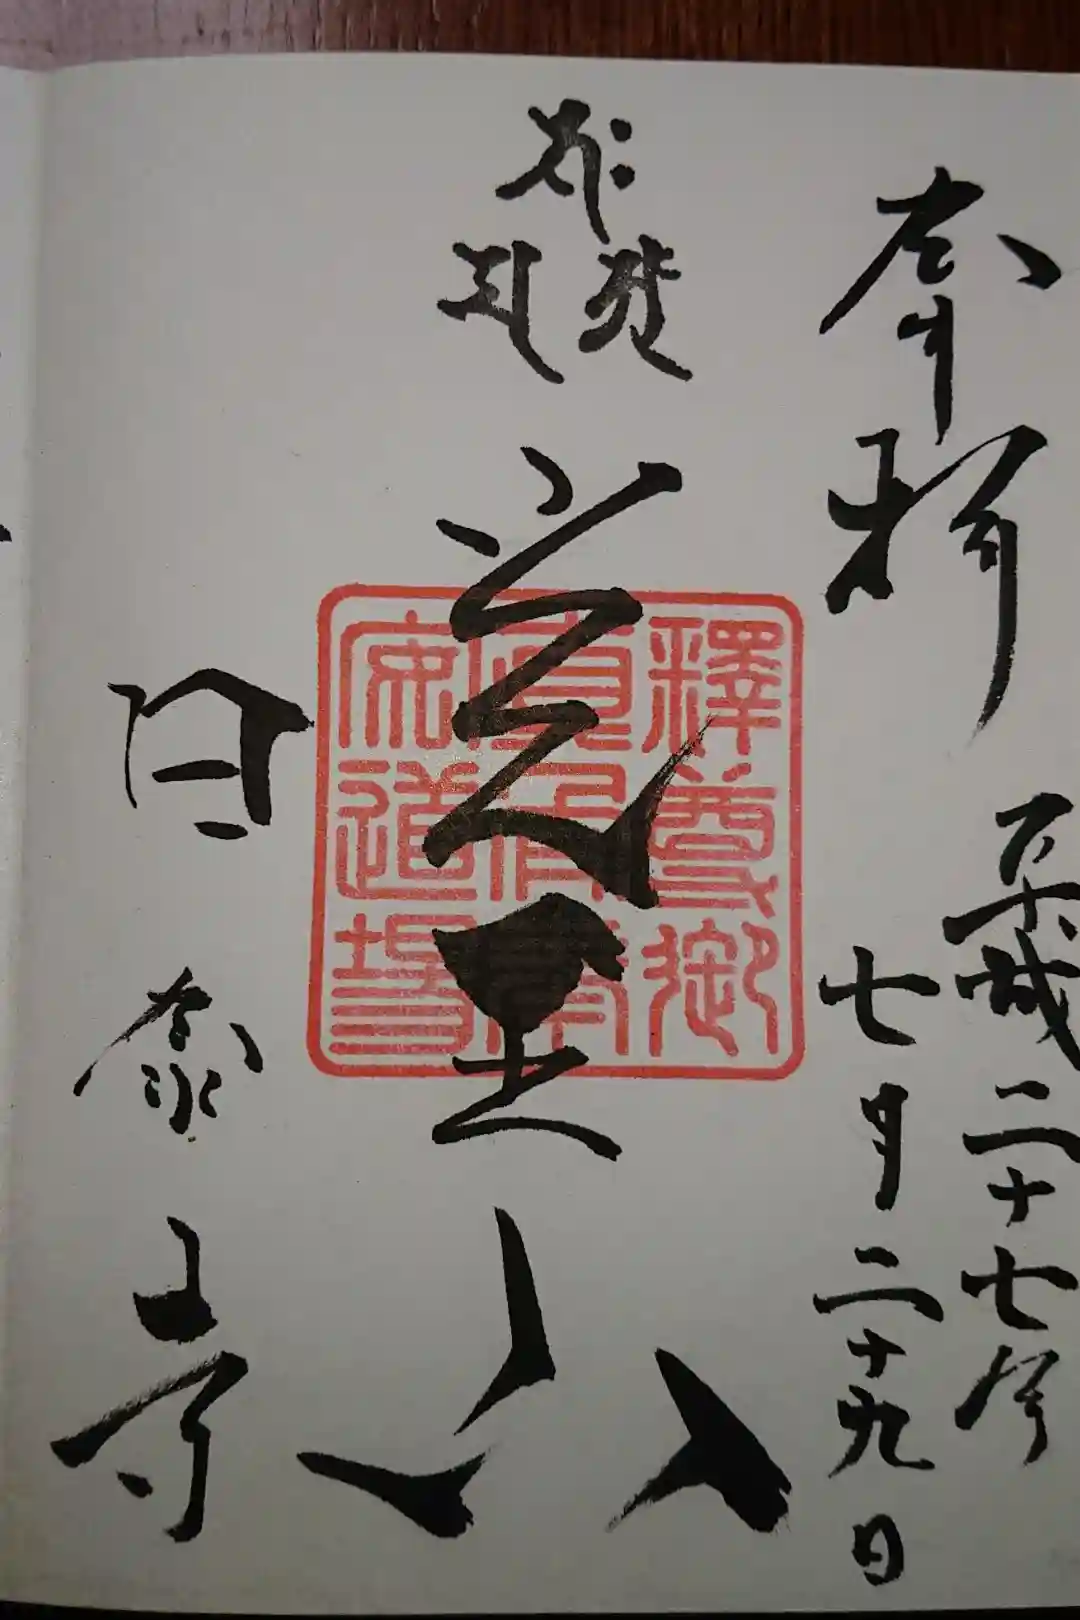 奉拝
平成二十七年
七月二十九日
覚王山
釋尊御
眞身奉
安道場
日泰寺